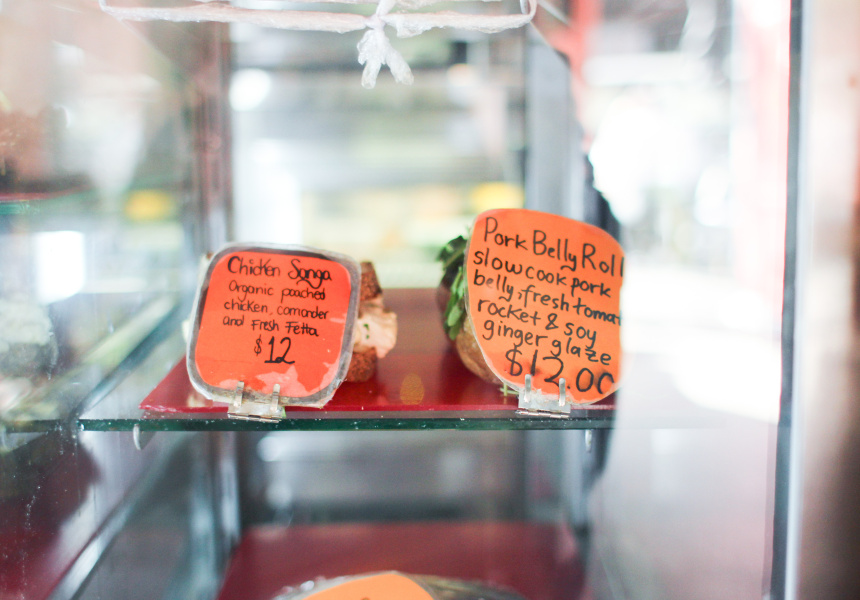 Chicken Sanga
Organic poached
chicken, coriander
and Fresh Fetta
$12
Pork Belly Roll
slow cook pork
belly, fresh tomat
rocket & soy
ginger glaze
$12.00